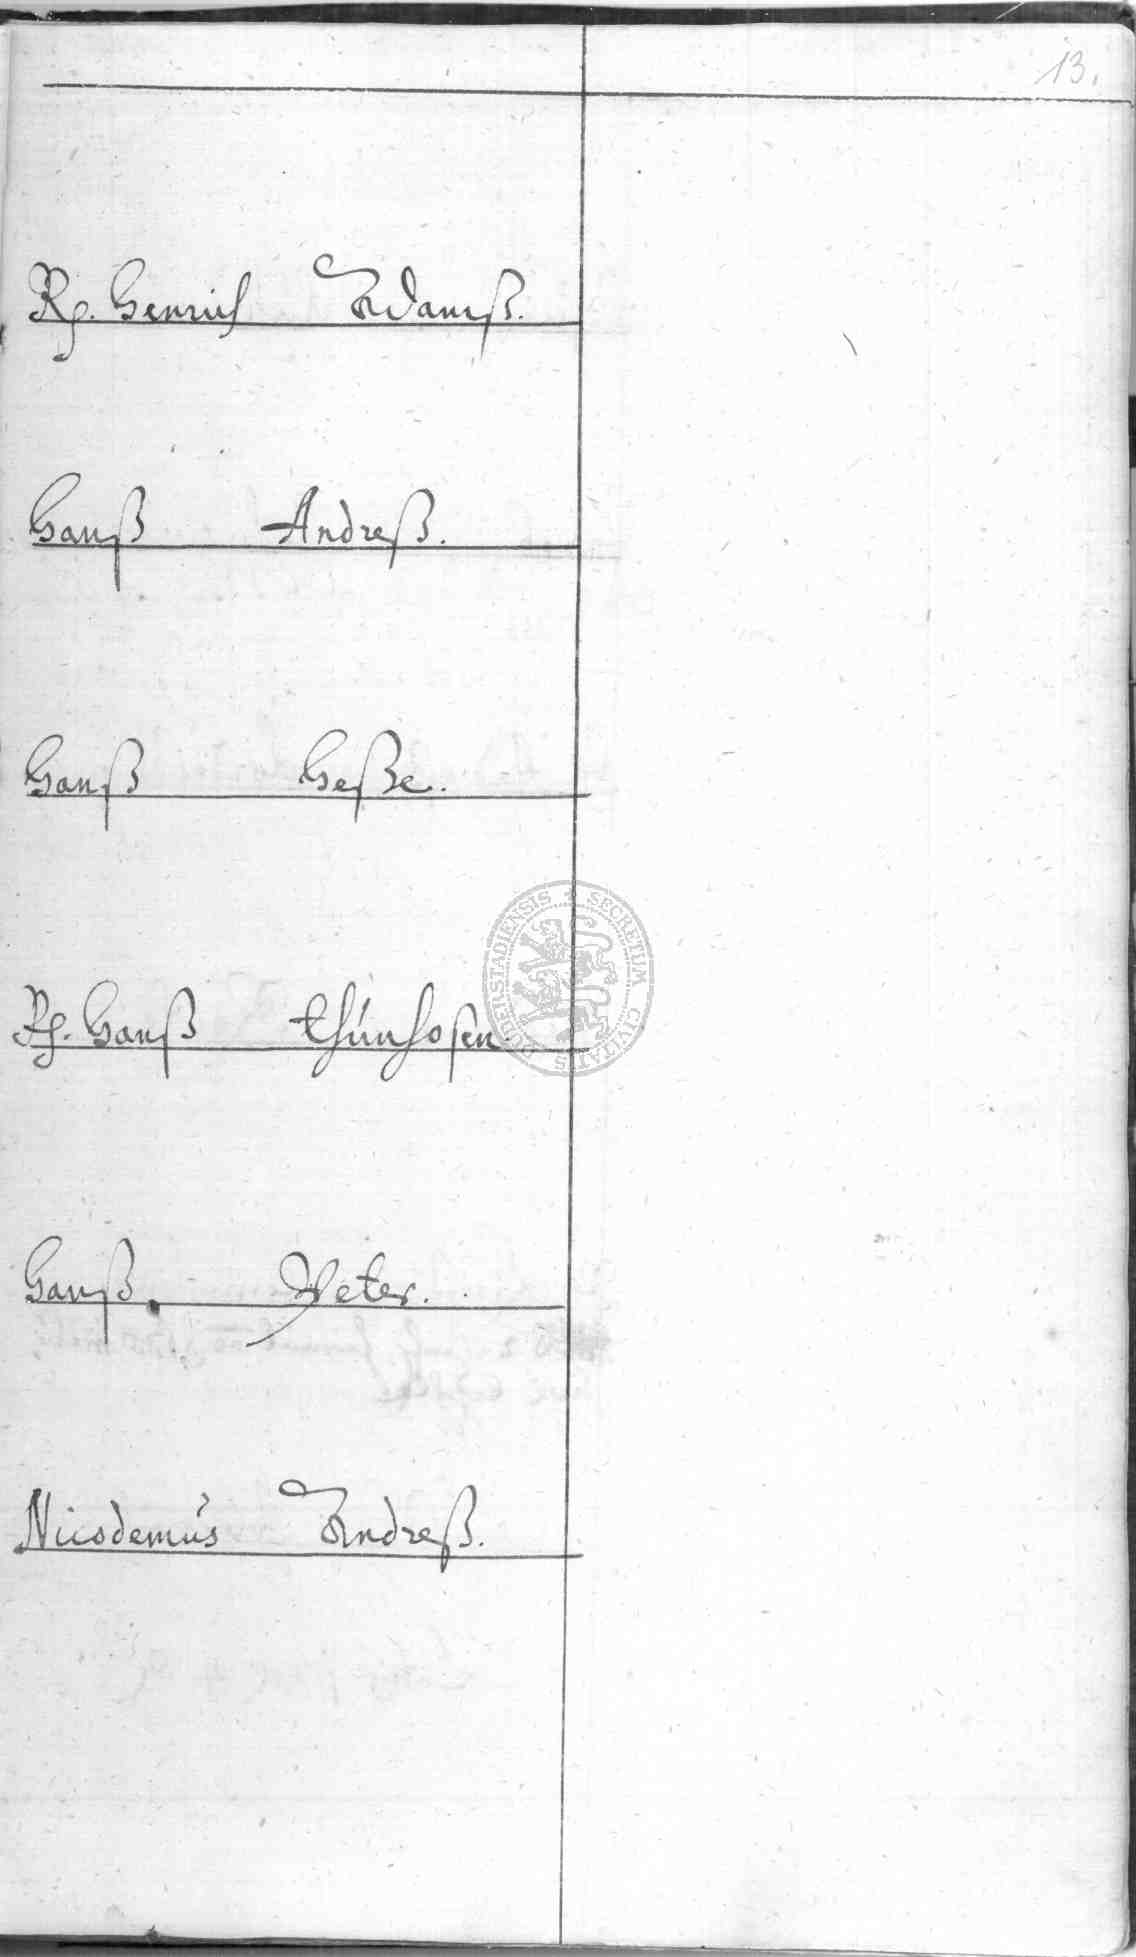 13.
Rp. Henrich Adamß.
Hanß Andreß.
Hanß Heße.
Rp. Hanß Thünhosen
Hanß Peter.
Nicodemus Andreß.
SECRETUM CIVITATIS DUDERSTADIENSIS